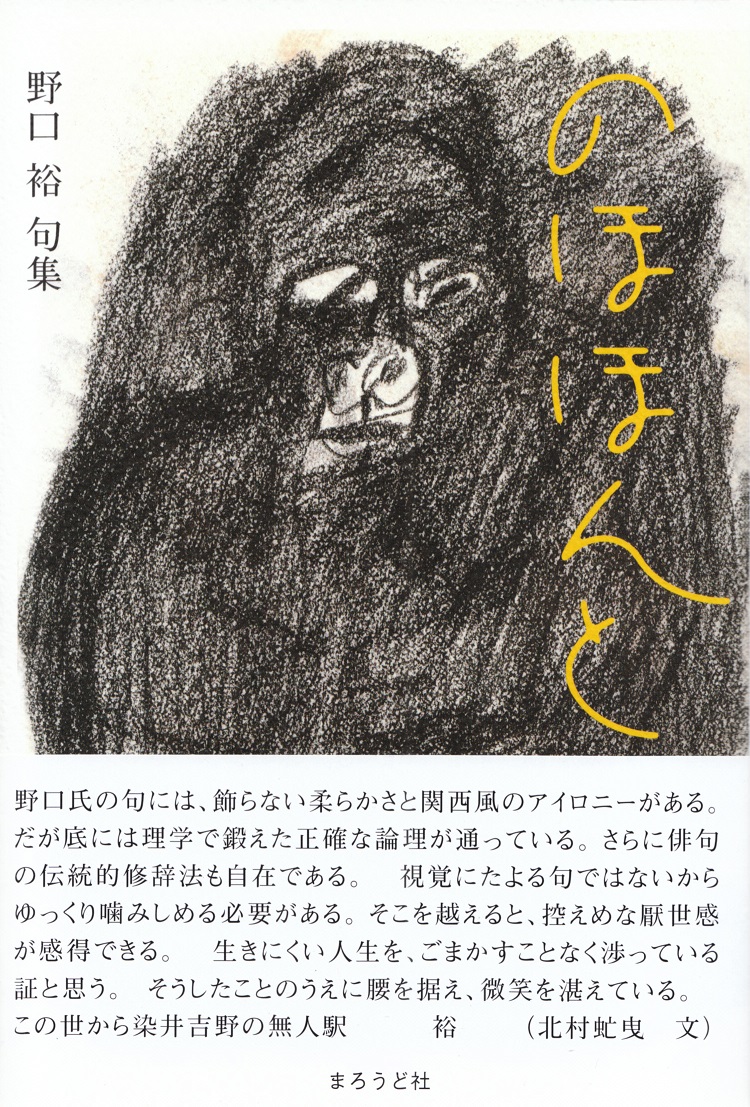 のほほんと
野口 裕 句集
野口氏の句には、飾らない柔らかさと関西風のアイロニーがある。
だが底には理学で鍛えた正確な論理が通っている。さらに俳句
の伝統的修辞法も自在である。　視覚にたよる句ではないから
ゆっくり噛みしめる必要がある。そこを越えると、控えめな厭世感
が感得できる。　生きにくい人生を、ごまかすことなく渉っている
証と思う。　そうしたことのうえに腰を据え、微笑を湛えている。
この世から染井吉野の無人駅　　　裕　　（北村虻曳　文）
まろうど社